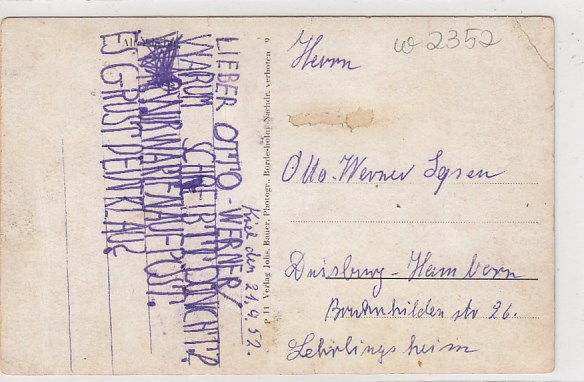 W 2352
Kiel den 21.4.52.
LIEBER OTTO-WERNER!
WARUM SCHREIBT DU DEN NICHT?
WIR WARTEN AUF POST.
ES GRÜST DEIN KLAUS
P 11 Verlag Johs. Bauer, Photogr., Bordesholm, Nachdr. verboten 9
Herrn
Otto-Werner
Duisburg-Hamborn
str 26.
Lehrlingsheim